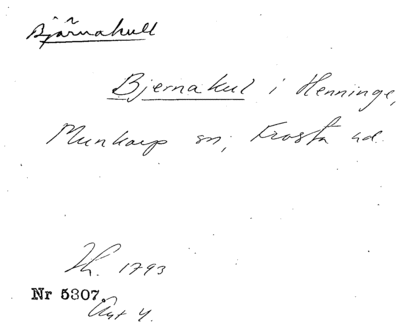 Bjärnakull
Bjernakul i Henninge,
Munkarp sn, Frosta hd.
Kh. 1793
Nr 5307
Akt 4.